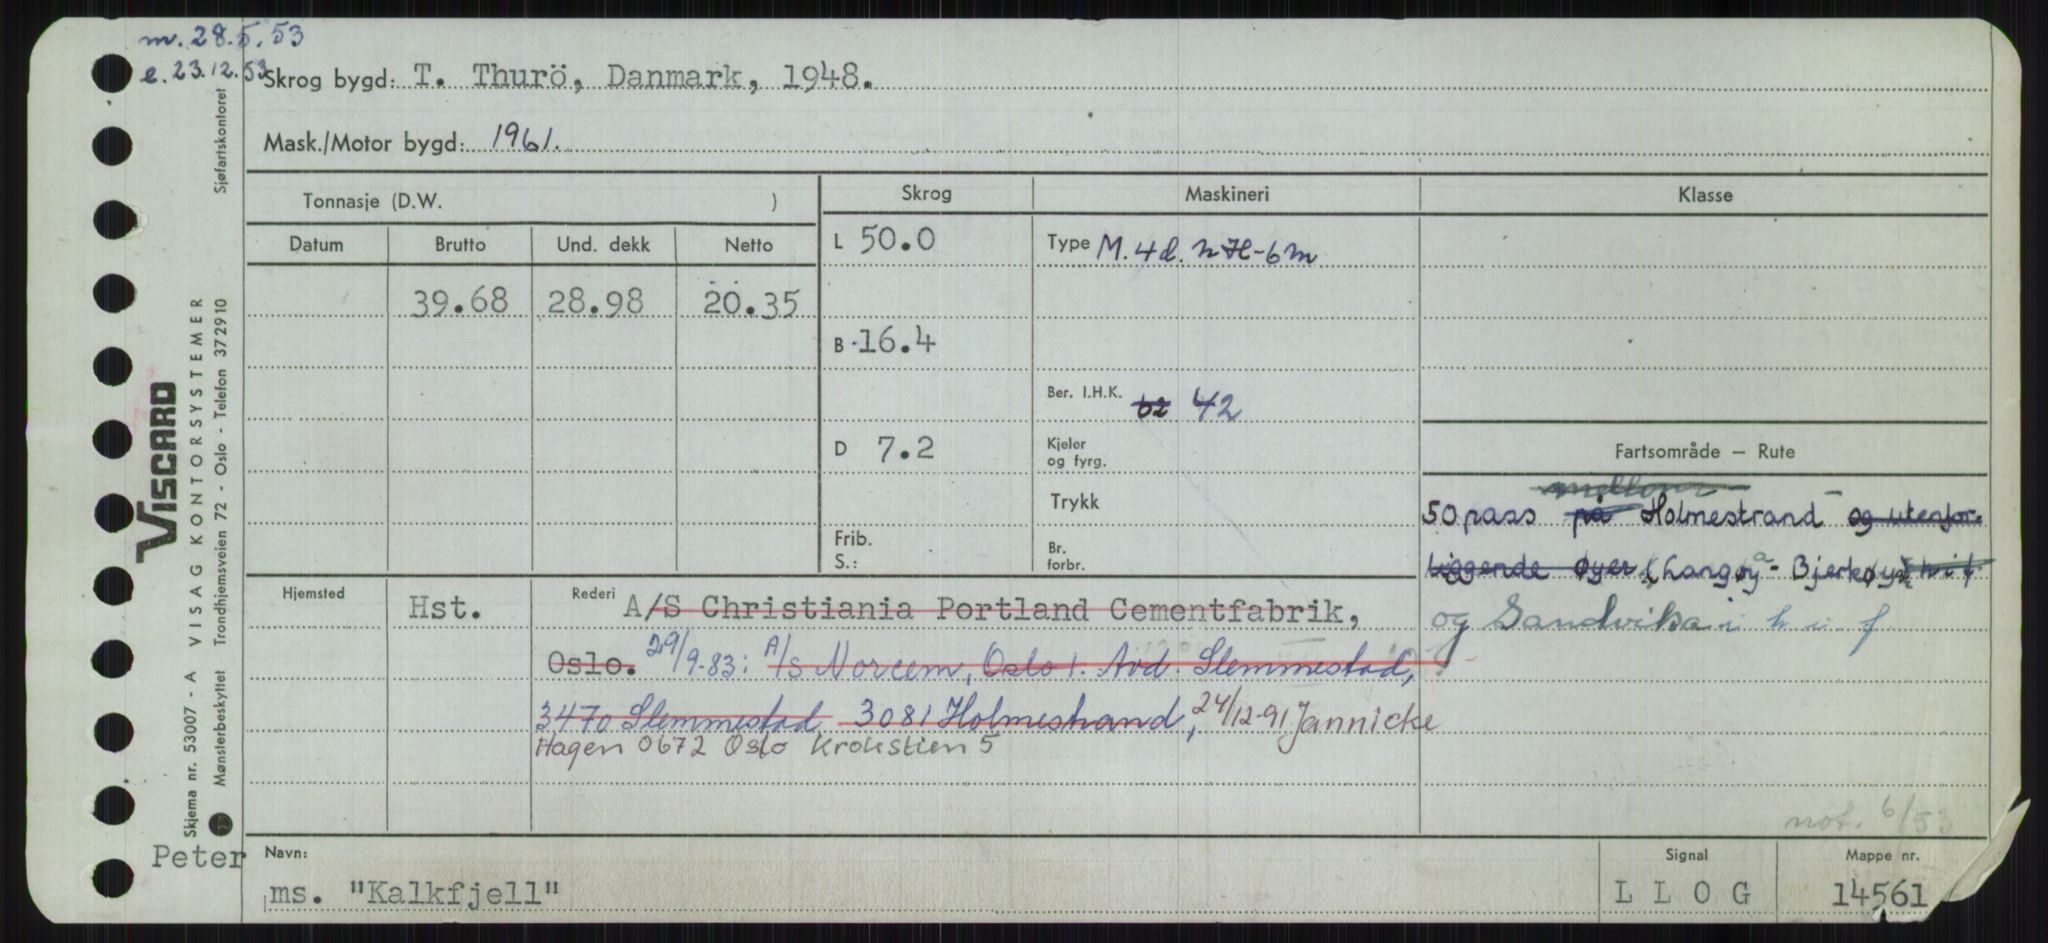 m. 28.5.53
e. 23.12.53
Skrog bygd: T. Thurö, Danmark, 1948.
Mask./Motor bygd: 1961.
Tonnasje (D.W. )
Skrog
Maskineri
Klasse
Datum
Brutto
Und. dekk
Netto
L 50.0
Type M. 4d. n H-6m
39.68
28.98
20.35
B 16.4
Ber. I.H.K. 62 42
D 7.2
Kjeler
og fyrg.
Trykk
Frib.
S.:
Br.
forbr.
Fartsområde – Rute
mellom
50 pass på Holmestrand og utenfor-
liggende øyer (Langøya - Bjerkøya) h i f
og Sandvika i h i f
not. 6/53
Hjemsted
Hst.
Rederi A/S Christiania Portland Cementfabrik,
Oslo. 29/9-83: A/S Norcem, Oslo 1. Avd. Slemmestad,
3470 Slemmestad, 3081 Holmestrand, 24/12-91 Jannicke
Hagen 0672 Oslo Krokstien 5
Peter
Navn:
ms. "Kalkfjell"
Signal
L L O G
Mappe nr.
14561
VISCARD
Skjema nr. 53007 - A VISAG KONTORSYSTEMER
Mønsterbeskyttet Trondhjemsveien 72 - Oslo - Telefon 372910 Sjøfartskontoret